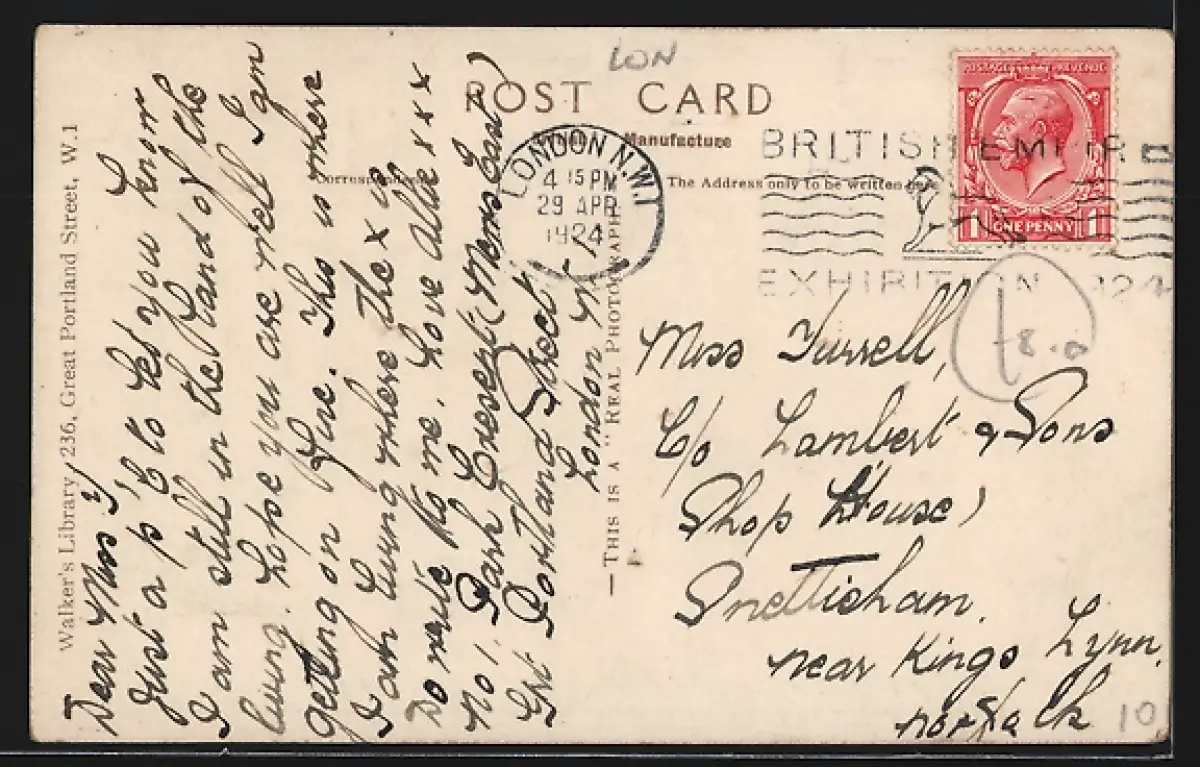 LON
POST CARD
Manufacture
Correspondence
The Address only to be written here
LONDON N.W.1
4 15 PM
29 APR
1924
BRITISH EMPIRE
EXHIBITION 1924
POSTAGE REVENUE
1 ONE PENNY 1
Walker's Library 236, Great Portland Street, W.1
Dear Miss T,
Just a p.c to let you know
I am still in the land of the
living. Hope you are well I am
getting on fine. This is where
I am living where the x is
Do write to me. Love allie x x x
No 1. Park Cresent (Mews East)
Grt Portland Street
London W.1
— THIS IS A "REAL PHOTOGRAPH"
Miss Turrell,
C/o Lambert & Sons
Shop House,
Snettisham.
near Kings Lynn.
norfolk
10